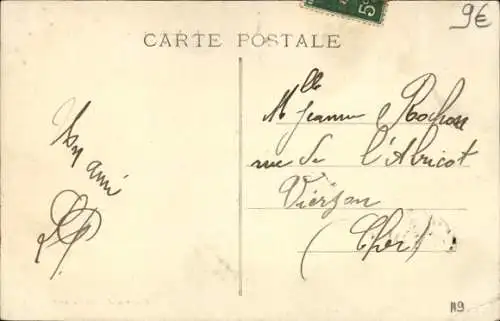 9€
5c
CARTE POSTALE
Un ami
Mlle Jeanne Rochon
rue de l'Abricot
Vierzon
(Cher)
119